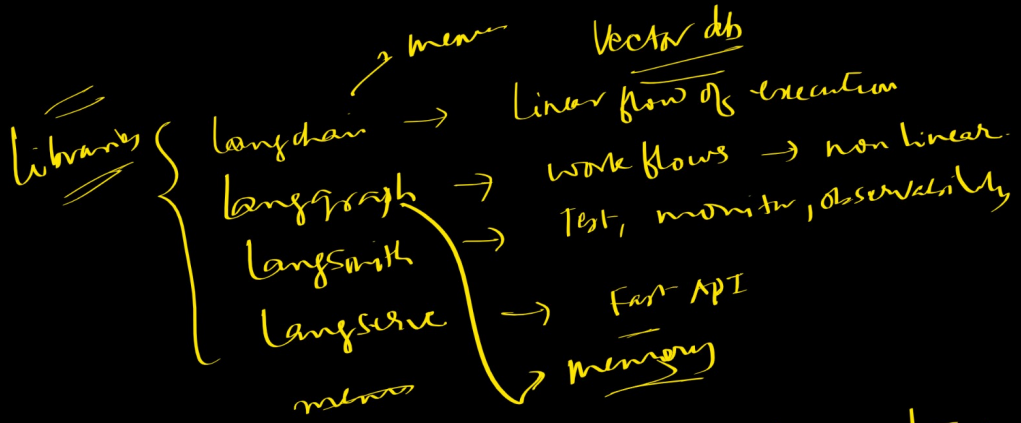 Vector db
Libraries
Langchain → Linear flow of execution
Langgraph → work flows → non linear.
Langsmith → Test, monitor, observability
Langserve → Fast API
memory